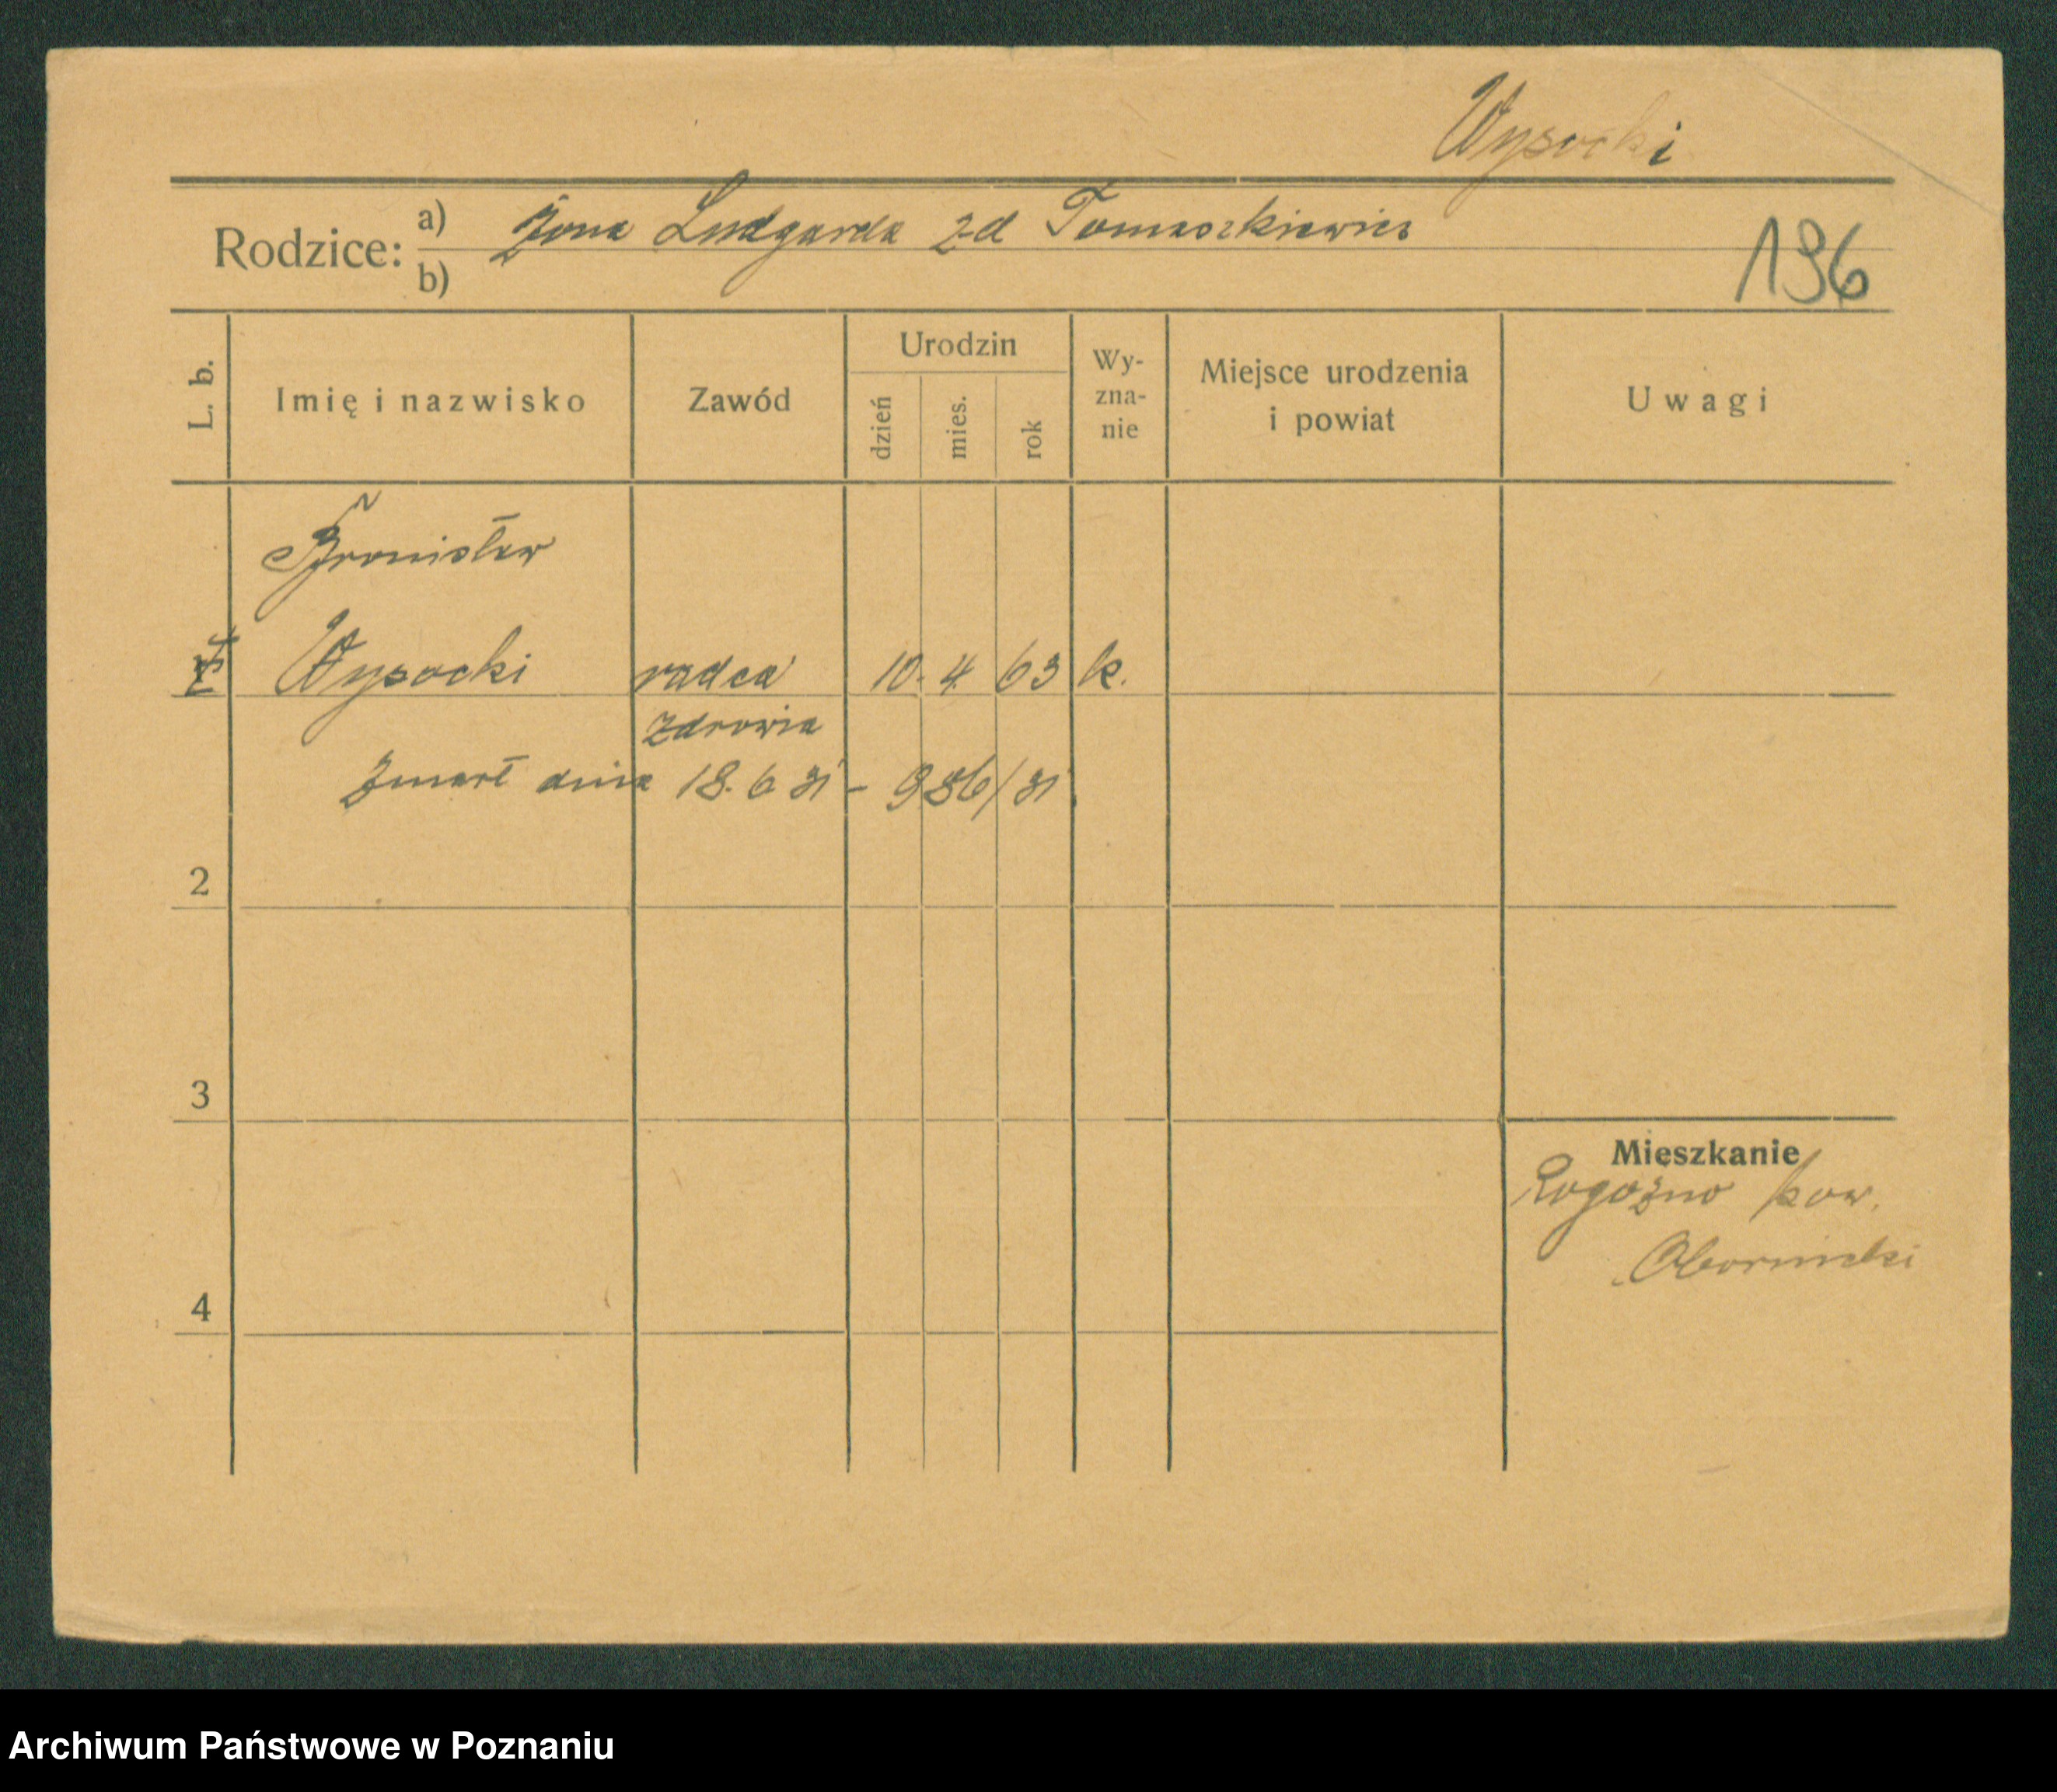 Wysocki
Rodzice: a) Żona Ludgarda z d Tomaszkiewicz
b)
196
L. b.
Imię i nazwisko
Zawód
Urodzin
dzień
mies.
rok
Wy-
zna-
nie
Miejsce urodzenia
i powiat
Uwagi
Bronisław
Wysocki radca 10. 4. 63 k.
zdrowia
Zmarł dnia 18. 6 31 - 986/31
2
3
Mieszkanie
Rogoźno pow.
Obornicki
4
Archiwum Państwowe w Poznaniu